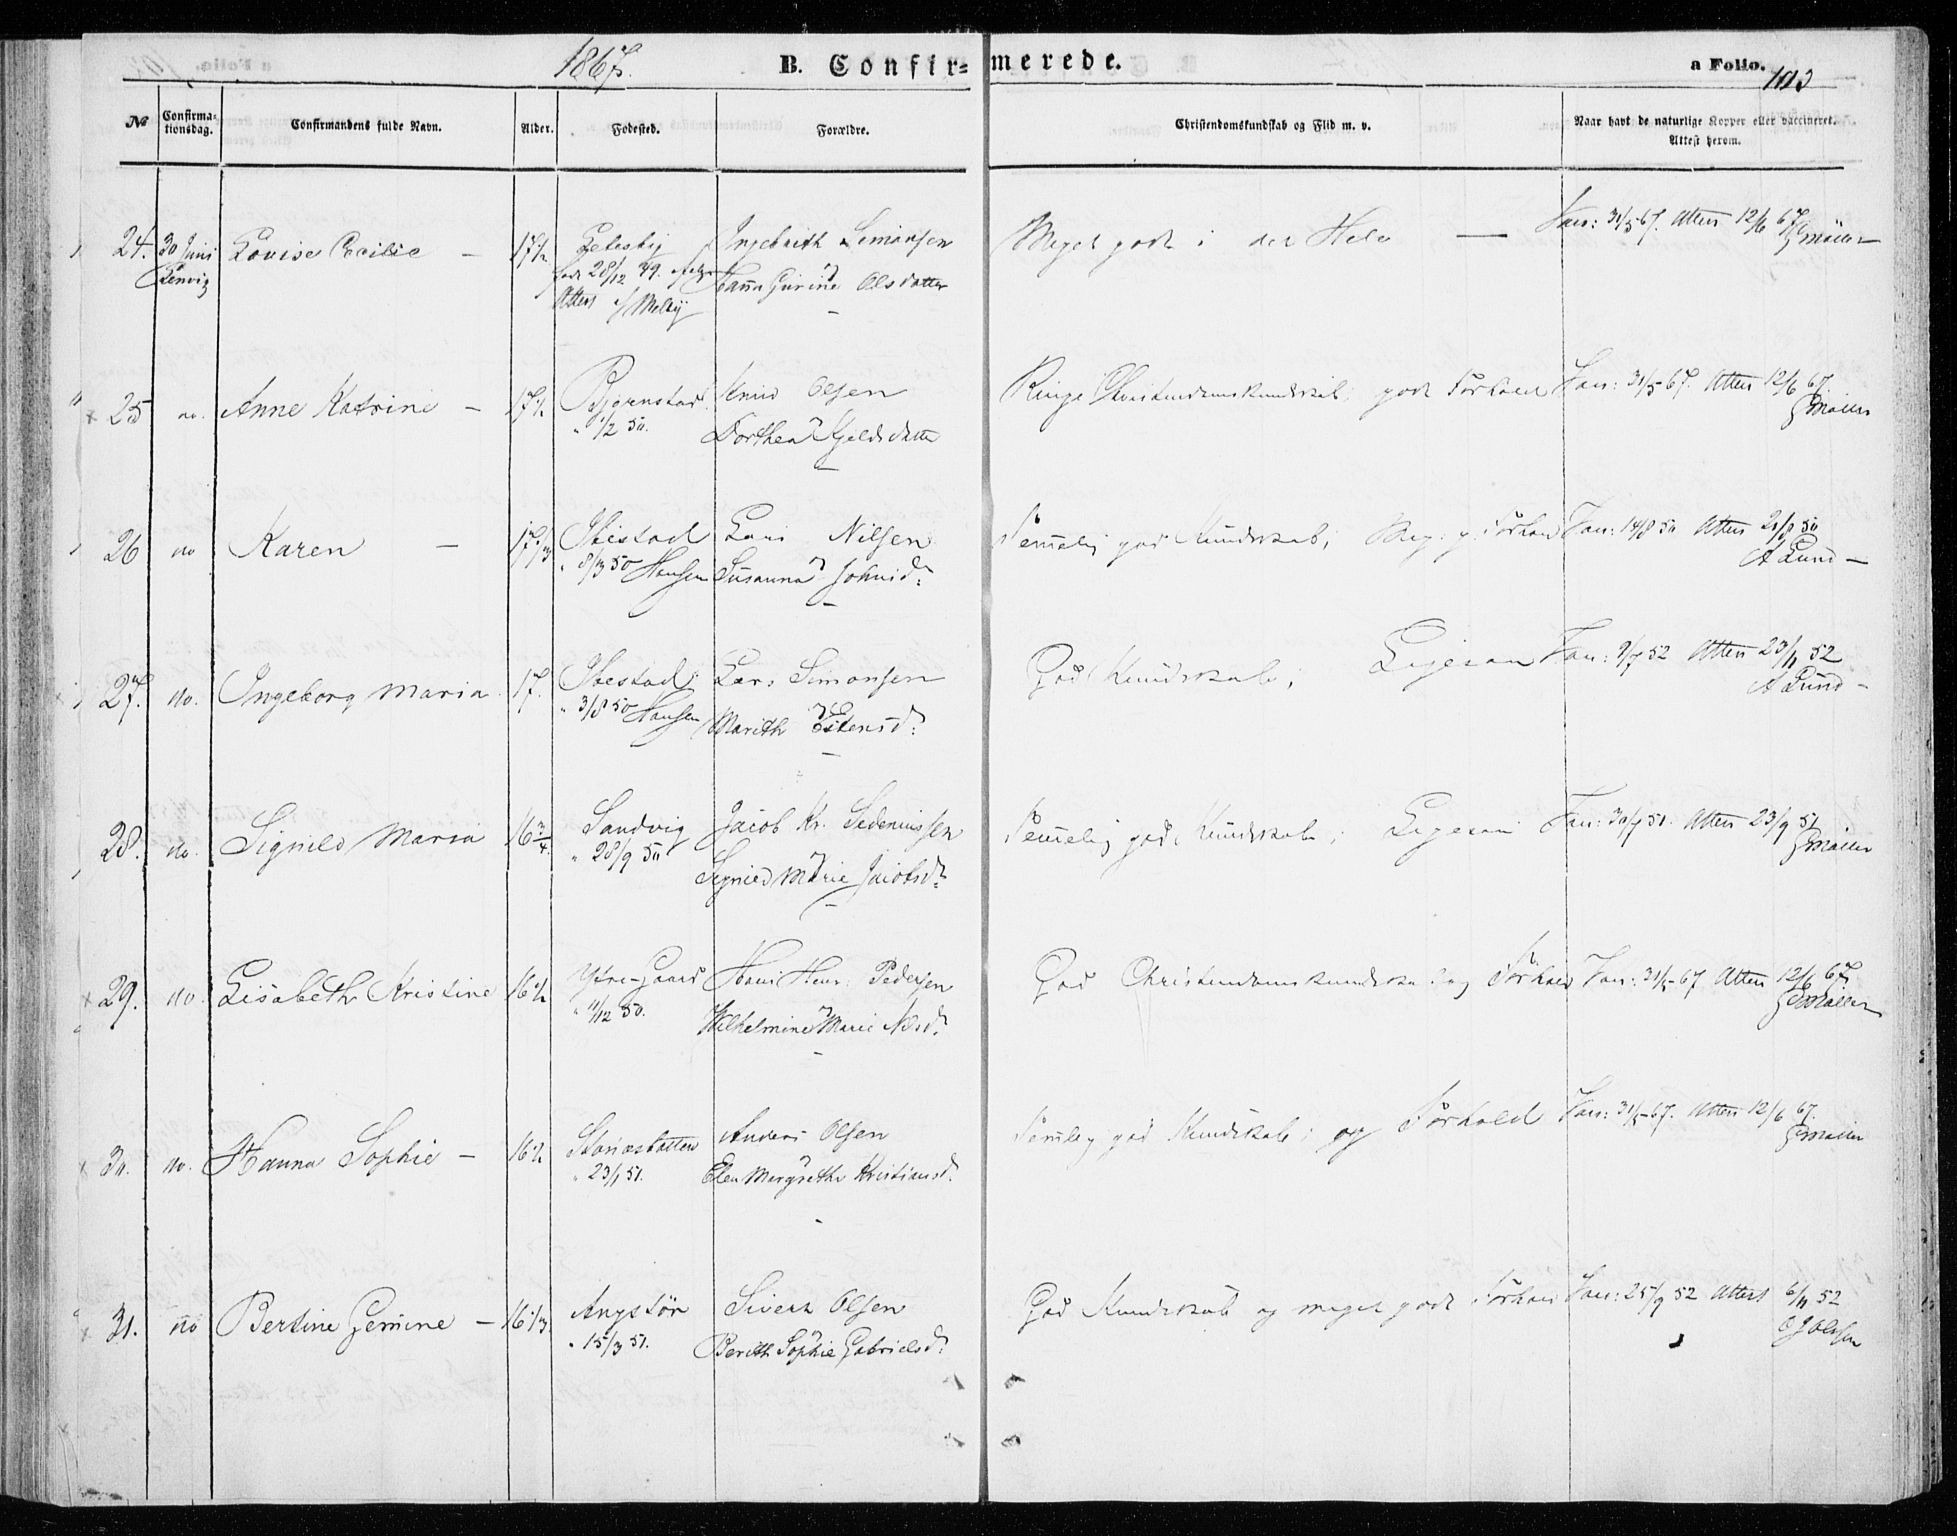 1867.
B. Confirmerede.
a Folio. 103
No Confirmationsdag. Confirmandens fulde Navn. Alder. Fødested. Forældre. Christendomskundskab og Flid m. v. Naar havt de naturlige Kopper eller vaccineret. Attest herom.
24. 30 Juni Lenvig Louise Cecilie – 17½
født 28/12 49.
Attest Melbÿ
Ingebrikt Simonsen
Olsdatter
Meget godt i det Hele — Vac: 31/5 67. Attest 12/6 67
Møller
25 do. Anne Katrine – 17½ Bjørnstad
" 1/2 50.
Knud Olsen
Dorthea Kjeldsdatter
Ringe Christendomskundskab, godt Forhold Vac: 31/5 67. Attest 12/6 67.
Møller
26 do Karen – 17 1/3 Ibestad
" 8/3 50 Hansen
Lars Nilsen
Susanna Johnsd:
Temelig god Kundskab, Meg. g. Forhold Vac: 14/8 50 Attest 21/8 50
A Lund –
27. do. Ingeborg Maria 17. Ibestad
" 3/8 50 Hansen
Lars Simonsen
Marith Estensd:
God Kundskab, Ligesaa Vac: 9/7 52 Attest 23/11 52
A Lund –
28. do. Signild Maria 16 3/4 Sandvig
" 28/9 50
Jacob Kr. Sedeniussen
Signild Marie Jacobsd:
Temelig god Kundskab, Ligesaa Vac: 30/7 51. Attest 23/9 51
Møller
29. do. Lisabeth Kristine 16½ Ytre-Gaard
" 11/12 50.
Hans Henr. Pedersen
Wilhelmine Marie Nilsd:
God Christendomskundskab og Forhold Vac: 31/5 67 Attest 12/6 67.
Møller
30. do. Hanna Sophie – 16½
" 23/1 51.
Anders Olsen
Elen Margrethe Kristiansd.
Temelig god Kundskab og Forhold Vac: 31/5 67. Attest 12/6 67.
Møller
31. do Bertine Gemine – 16 1/3 Angstør
" 15/3 51.
Sivert Olsen
Berith Sophie Gabrielsd:
God Kundskab og meget godt Forhold Vac: 25/9 52 Attest 6/11 52
Olsen